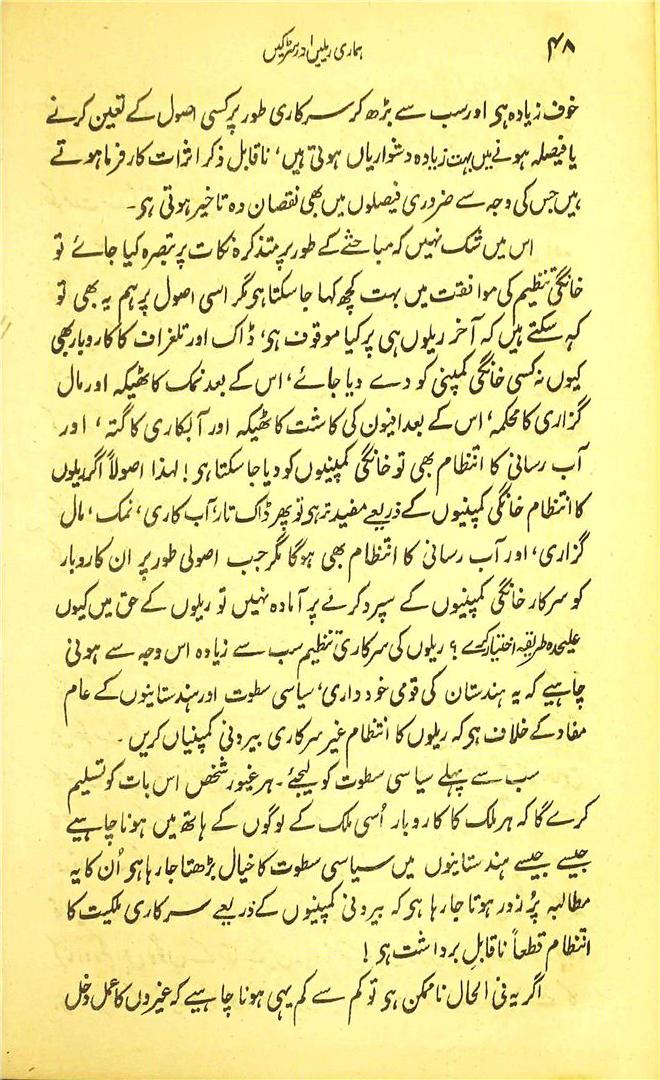 ۴۸
ہماری ریلیں اور سڑکیں
خوف زیادہ ہی اور سب سے بڑھ کر سرکاری طور پر کسی اصول کے تعین کرنے
یا فیصلہ ہونے میں بہت زیادہ دشواریاں ہوتی ہیں، ناقابل ذکر اثرات کارفرما ہوتے
ہیں جس کی وجہ سے ضروری فیصلوں میں بھی نقصان دہ تاخیر ہوتی ہی۔
اس میں شک نہیں کہ مباحثے کے طور پر متذکرہ نکات پر تبصرہ کیا جائے تو
خانگی تنظیم کی موافقت میں بہت کچھ کہا جا سکتا ہی مگر اسی اصول پر ہم یہ بھی تو
کہہ سکتے ہیں کہ آخر ریلوں ہی پر کیا موقوف ہی، ڈاک اور تلغراف کا کاروبار بھی
کیوں نہ کسی خانگی کمپنی کو دے دیا جائے، اس کے بعد نمک کا ٹھیکہ اور مال
گزاری کا محکمہ، اس کے بعد افیون کی کاشت کا ٹھیکہ اور آبکاری کا گتہ، اور
آب رسانی کا انتظام بھی تو خانگی کمپنیوں کو دیا جا سکتا ہی! لہذا اصولاً اگر ریلوں
کا انتظام خانگی کمپنیوں کے ذریعے مفید تر ہی تو پھر ڈاک تار، آب کاری، نمک، مال
گزاری، اور آب رسانی کا انتظام بھی ہوگا مگر جب اصولی طور پر ان کاروبار
کو سرکار خانگی کمپنیوں کے سپرد کرنے پر آمادہ نہیں تو ریلوں کے حق میں کیوں
علیحدہ طریقہ اختیار کرے؟ ریلوں کی سرکاری تنظیم سب سے زیادہ اس وجہ سے ہونی
چاہیے کہ یہ ہندستان کی قومی خودداری، سیاسی سطوت اور ہندستانیوں کے عام
مفاد کے خلاف ہی کہ ریلوں کا انتظام غیر سرکاری بیرونی کمپنیاں کریں۔
سب سے پہلے سیاسی سطوت کو لیجئے۔ ہر غیور شخص اس بات کو تسلیم
کرے گا کہ ہر ملک کا کاروبار اُسی ملک کے لوگوں کے ہاتھ میں ہونا چاہیے
جیسے جیسے ہندستانیوں میں سیاسی سطوت کا خیال بڑھتا جا رہا ہی اُن کا یہ
مطالبہ پُر زور ہوتا جا رہا ہی کہ بیرونی کمپنیوں کے ذریعے سرکاری ملکیت کا
انتظام قطعاً ناقابلِ برداشت ہی!
اگر یہ فی الحال ناممکن ہی تو کم سے کم یہی ہونا چاہیے کہ غیروں کا عمل دخل